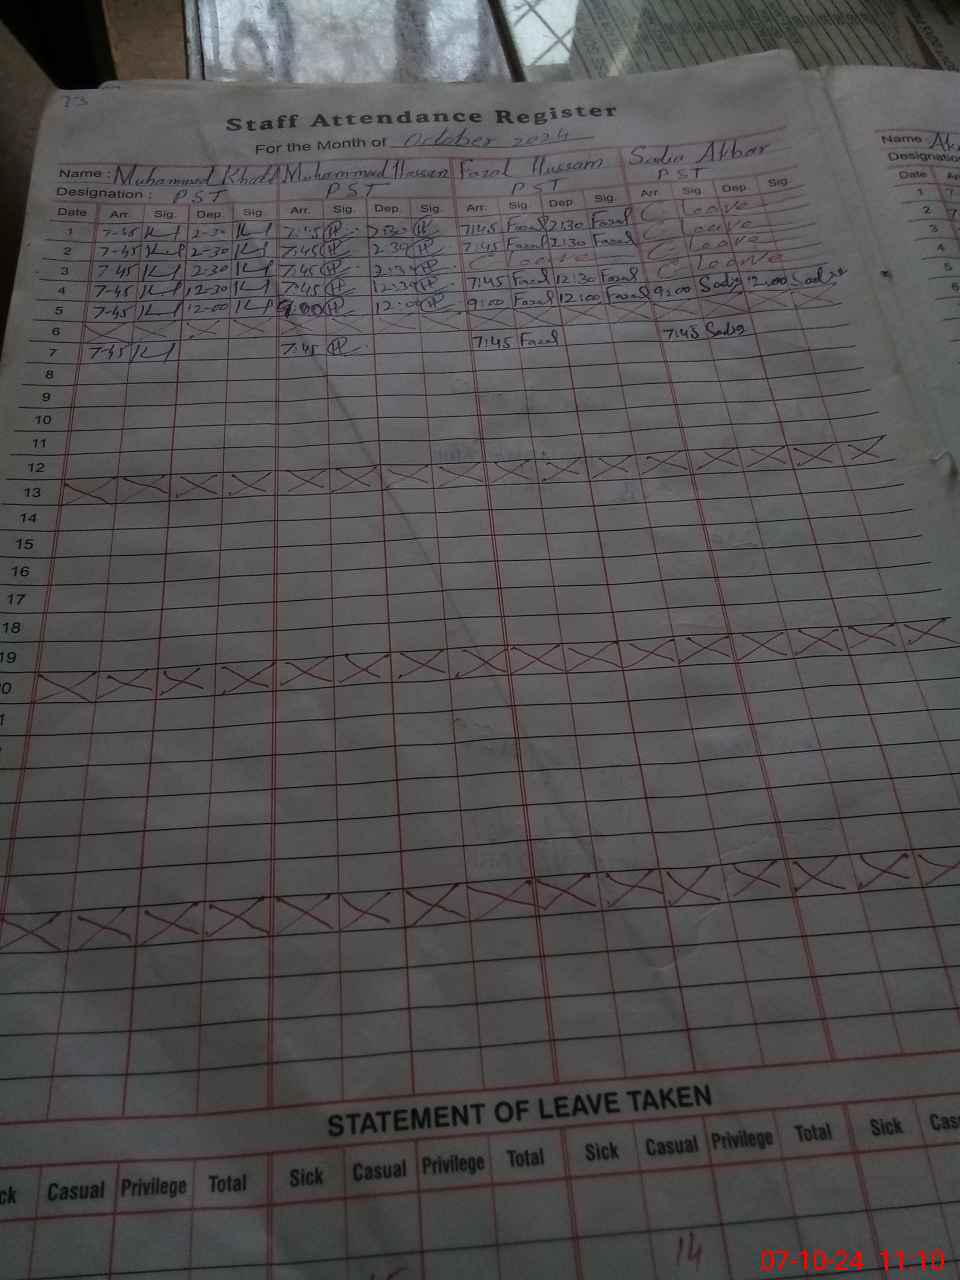 Staff Attendance Register
For the Month of October 2024
Name : Muhammad Khalil Muhammad Hassan Fazal Hussain Sadia Akbar
Name :
Designation : PST PST PST PST
Designation
Date Arr. Sig. Dep. Sig. Arr. Sig. Dep. Sig. Arr. Sig. Dep. Sig. Arr. Sig. Dep. Sig.
Date
1 7-45 2-30 7:45 2:30 7:45 Fazal 2:30 Fazal C Leave
1
2 7-45 2-30 7:45 2:30 7:45 Fazal 2:30 Fazal C Leave
2
3 7-45 2-30 7:45 2:30 C Leave C Leave
3
4 7-45 12-30 7:45 12:30 7:45 Fazal 12:30 Fazal C Leave
4
5 7-45 12-00 9:00 12:00 9:00 Fazal 12:00 Fazal 9:00 Sadia 12:00 Sadia
5
6
6
7 7-45 7:45 7:45 Fazal 7:45 Sadia
8
9
10
11
12
13
14
15
16
17
18
19
STATEMENT OF LEAVE TAKEN
Casual Privilege Total Sick Casual Privilege Total Sick Casual Privilege Total Sick
14
07-10-24 11:10